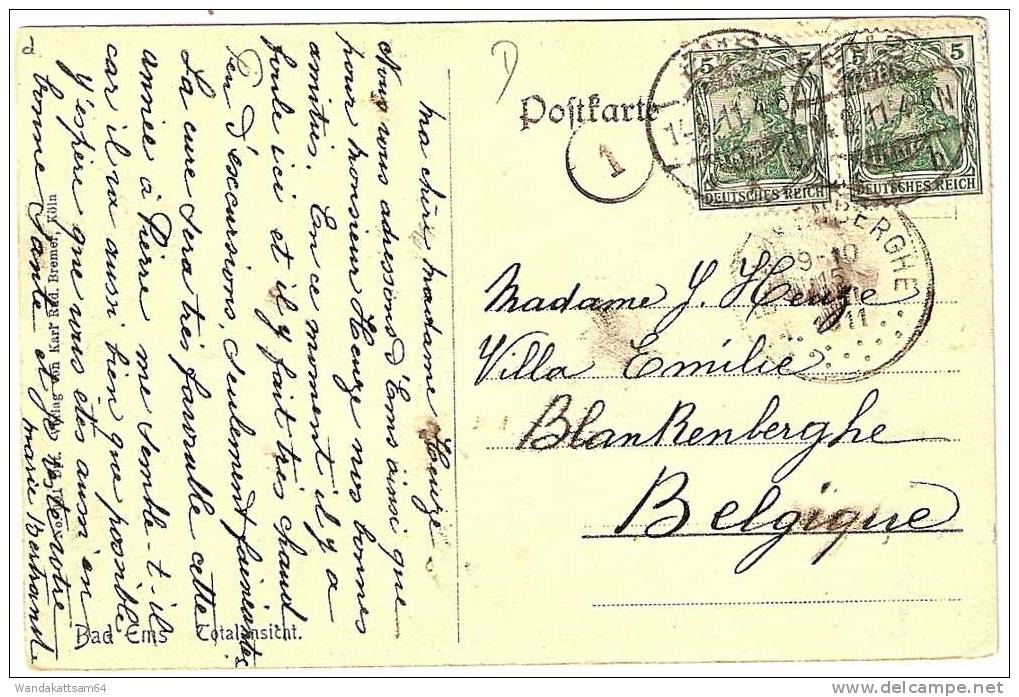 Postkarte
1
DEUTSCHES REICH
DEUTSCHES REICH
5
5
5
BLANKENBERGHE
9-10
15
1911
Madame J. Heuze
Villa Emilie
Blankenberghe
Belgique
Ma chère Madame Heuze
Nous vous adressons d'Ems ainsi que
pour Monsieur Heuze nos bonnes
amitiés. En ce moment il y a
foule ici et il y fait très chaud
Peu d'excursions, seulement fainéantes
La cure sera très favorable cette
année à Pierre me semble-t-il
car il va aussi bien que possible
J'espère que vous êtes aussi en
bonne Santé et je reste votre
Marie Bertrand
Verlag von Karl Rud. Bremer, Köln
Bad Ems Totalansicht.
Wandakattsam64
www.delcampe.net